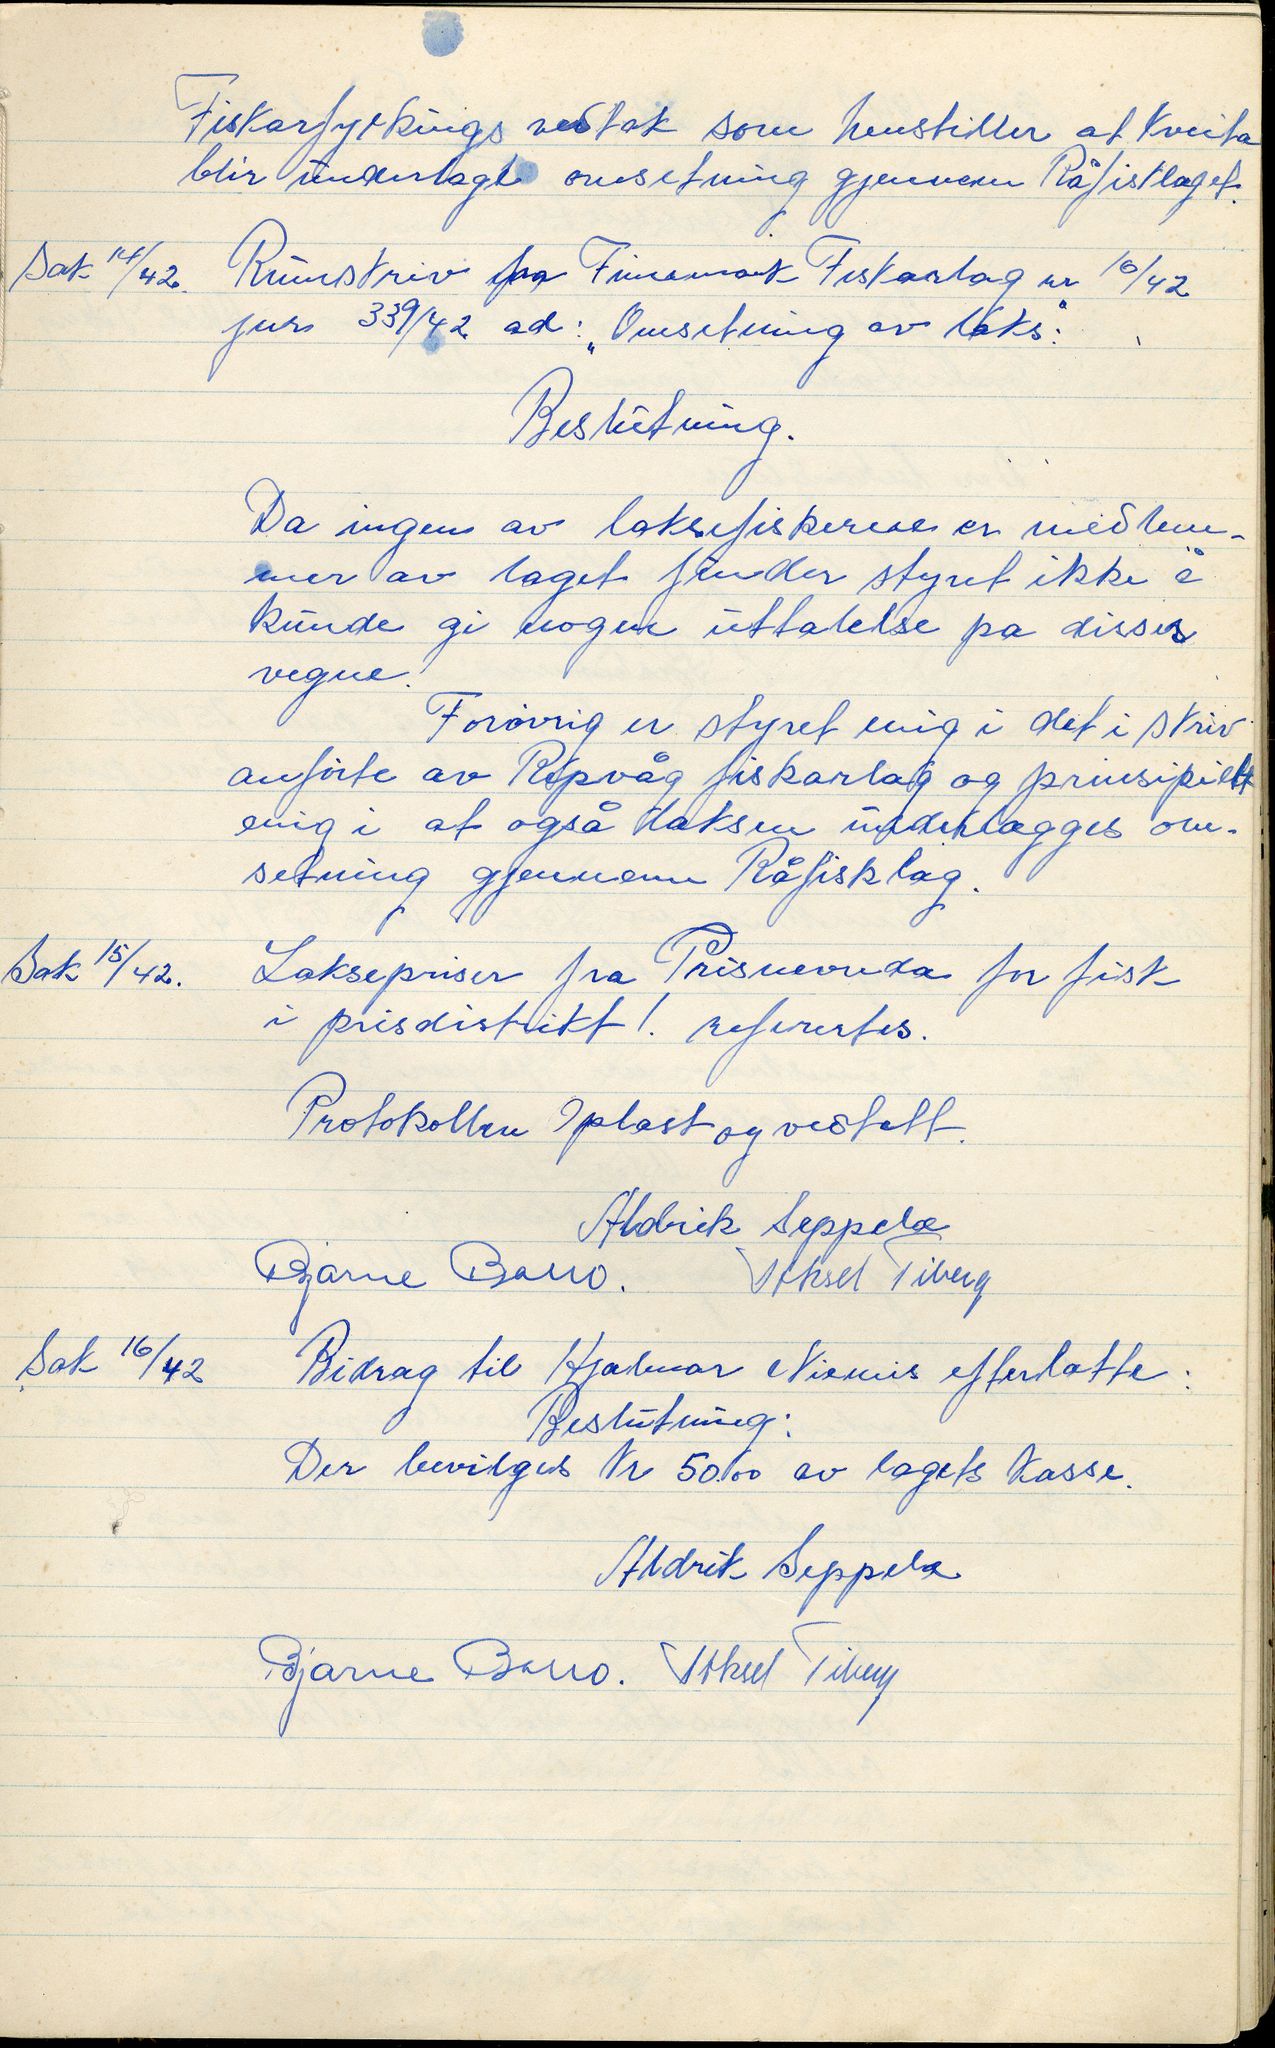 Fiskarfylkings vedtak som henstiller at Kveita
blir underlagt omsetning gjennem Råfisklaget.
Sak 14/42. Runskriv fra Finnmark Fiskarlag nr 10/42
jnr 339/42 ad: „Omsetning av laks":
Beslutning.
Da ingen av laksefiskerene er medlem-
mer av laget finder styret ikke å
kunde gi nogen uttalelse på disses
vegne.
Forøvrig er styret enig i det i skriv
anførte av Repvåg fiskarlag og prinsipielt
enig i at også laksen underlægges om-
setning gjennem Råfisklag.
Sak 15/42. Laksepriser fra Prisnevnda for fisk
i prisdistrikt 1. refertes.
Protokollen oplæst og vedtatt.
Aldrik Seppelæ
Bjarne Basso. Aksel Tiberg
Sak 16/42 Bidrag til Hjalmar Niemis efterlatte:
Beslutning:
Der bevilges Kr 50.00 av lagets Kasse.
Aldrik Seppelæ
Bjarne Basso. Aksel Tiberg